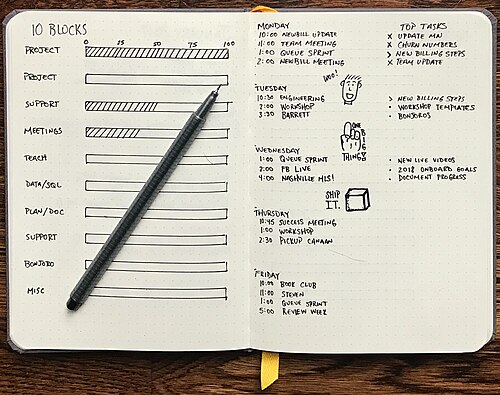 10 BLOCKS
0 25 50 75 100
PROJECT
PROJECT
SUPPORT
MEETINGS
TEACH
DATA/SQL
PLAN/DOC
SUPPORT
BONJORO
MISC
MONDAY
10:00 NEWBILL UPDATE
11:00 TEAM MEETING
1:00 QUEUE SPRINT
2:00 NEWBILL MEETING
TOP TASKS
X UPDATE MN
X CHURN NUMBERS
> NEW BILLING STEPS
X TEAM UPDATE
WOO!
TUESDAY
10:30 ENGINEERING
2:00 WORKSHOP
3:30 BARRETT
> NEW BILLING STEPS
• WORKSHOP TEMPLATES
• BONJOROS
ONE
BIG
THING!
WEDNESDAY
1:00 QUEUE SPRINT
2:00 PB LIVE
4:00 NASHVILLE HLS!
• NEW LIVE VIDEOS
• 2018 ONBOARD GOALS
• DOCUMENT PROGRESS
SHIP
IT.
THURSDAY
10:45 SUCCESS MEETING
1:00 WORKSHOP
2:30 PICKUP CANAAN
FRIDAY
10:00 BOOK CLUB
11:00 STEVEN
1:00 QUEUE SPRINT
5:00 REVIEW WEEK